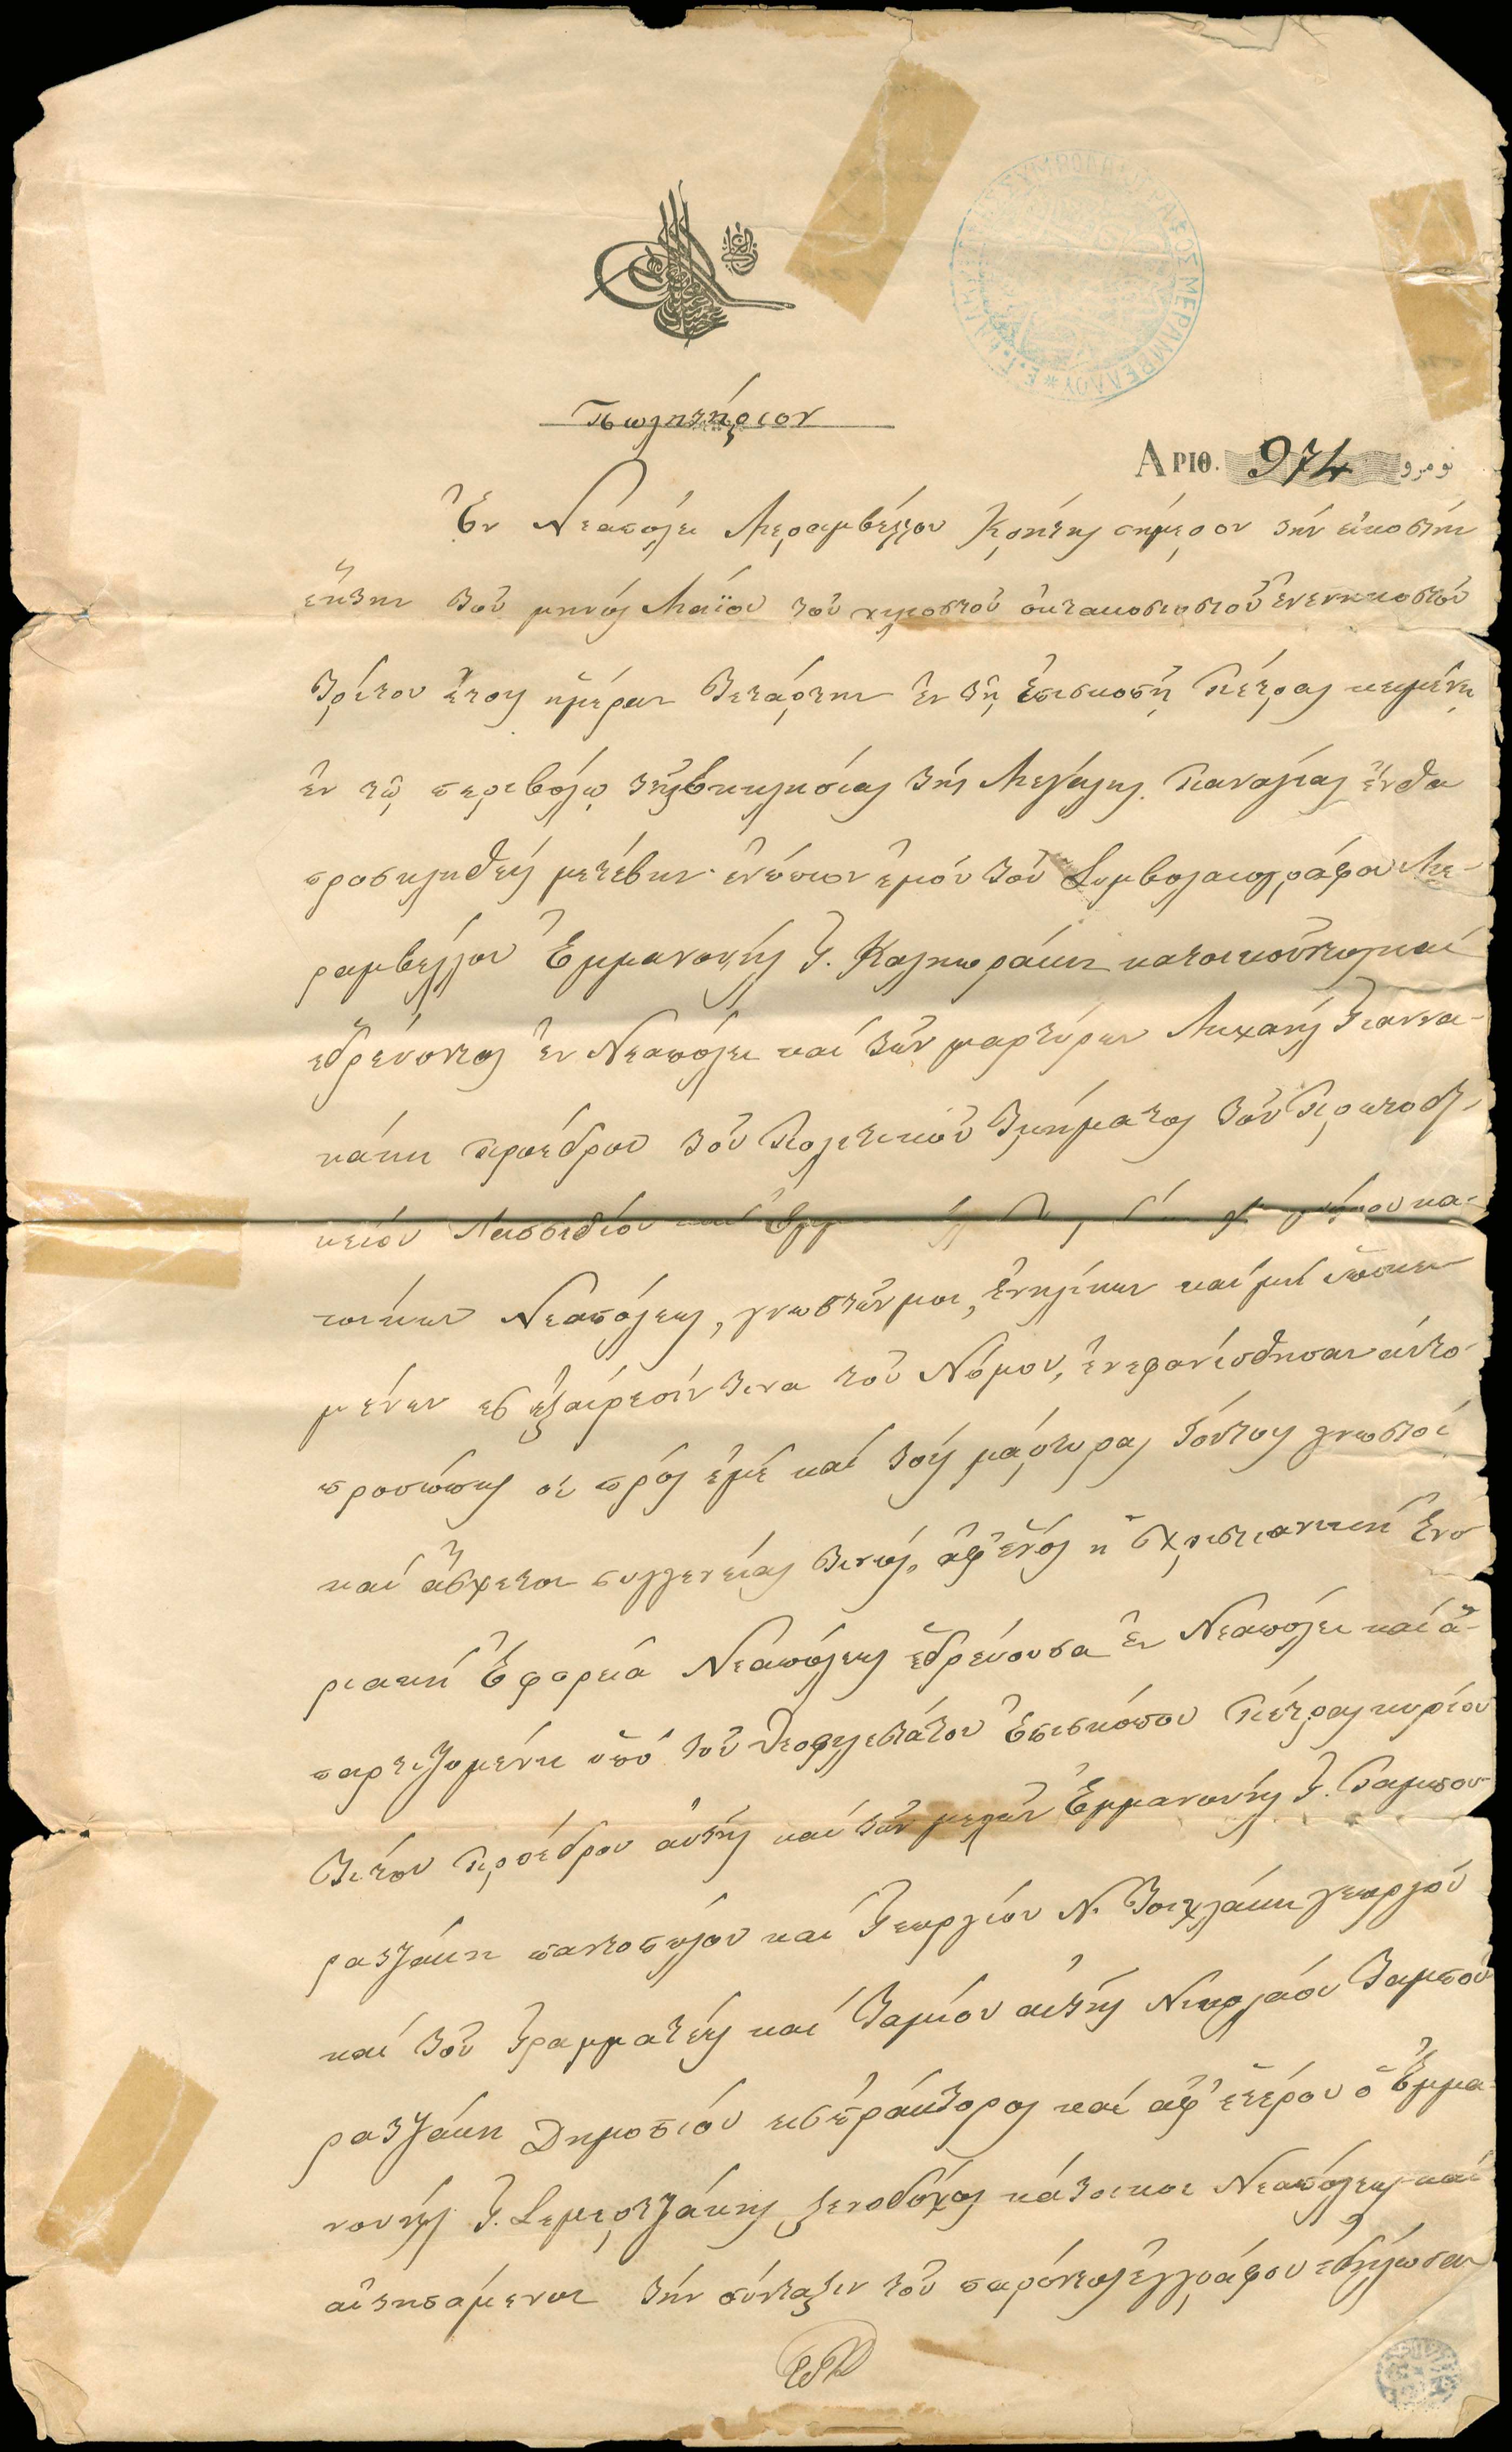 ΣΥΜΒΟΛΑΙΟΓΡΑΦΟΣ ΜΕΡΑΜΒΕΛΛΟΥ
Πωλητήριον
ΑΡΙΘ. 974 نومرو
Ἐν Νεαπόλει Μεραμβέλλου Κρήτης σήμερον τήν εἰκοστήν
ἕκτην τοῦ μηνός Μαΐου τοῦ χιλιοστοῦ ὀκτακοσιοστοῦ ἐνενηκοστοῦ
τρίτου ἔτους ἡμέραν Τετάρτην ἐν τῇ Ἐπισκοπῇ Πέτρας κειμένῃ
ἐν τῷ περιβόλῳ τῆς Ἐκκλησίας τῆς Μεγάλης Παναγίας ἔνθα
προσκληθείς μετέβην ἐνώπιον ἐμοῦ τοῦ Συμβολαιογράφου Με-
ραμβέλλου Ἐμμανουήλ Γ. Καληωράκη κατοικοῦντος καί
ἑδρεύοντος ἐν Νεαπόλει καί τῶν μαρτύρων Μιχαήλ Γιαννα-
κάκη Προέδρου τοῦ Πολιτικοῦ Τμήματος τοῦ Πρωτοδι-
κείου Λασσιθίου καί κα-
τοίκων Νεαπόλεως, γνωστῶν μοι, ἐνηλίκων καί μή ὑποκει
μένων εἰς ἐξαίρεσίν τινα τοῦ Νόμου, ἐνεφανίσθησαν αὐτο-
προσώπως οἱ πρός ἐμέ καί τούς μάρτυρας τούτους γνωστοί
καί ἄσχετοι συγγενείας τινός, ἀφ' ἑνός ἡ Χριστιανική Ἐνο
ριακή Ἐφορεία Νεαπόλεως ἑδρεύουσα ἐν Νεαπόλει καί ἀ-
παρτιζομένη ὑπό τοῦ Θεοφιλεστάτου Ἐπισκόπου Πέτρας κυρίου
Τίτου Προέδρου αὐτῆς καί τῶν μελῶν Ἐμμανουήλ Γ. Ταμπου
ρατζάκη παντοπώλου καί Γεωργίου Ν. Τσιχλάκη γεωργοῦ
καί τοῦ Γραμματέως καί Ταμίου αὐτῆς Νικολάου Ταμπου
ρατζάκη Δημοσίου εἰσπράκτορος καί ἀφ' ἑτέρου ὁ Ἐμμα
νουήλ Γ. Σεμερτζάκης ξενοδόχος κάτοικοι Νεαπόλεως καί
αἰτησάμενοι τήν σύνταξιν τοῦ παρόντος ἐγγράφου ἐδήλωσαν